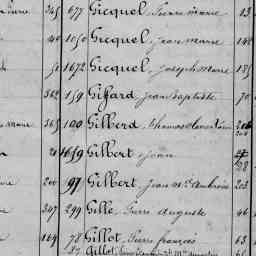 345 677 Gicquel, Pierre Marie 13
40 1050 Gicquel, Jean Marie 148
50 1672 Gicquel, Joseph Marie 185
362 159 Giffard Jean Baptiste 70
365 190 Gilberd, Thomas
1659 Gilbert Jean 28
200 97 Gilbert, Jean Mie Ambroise 203
347 299 Gille, Pierre Auguste 46
164 78 Gillot, Pierre François 63
Gillot